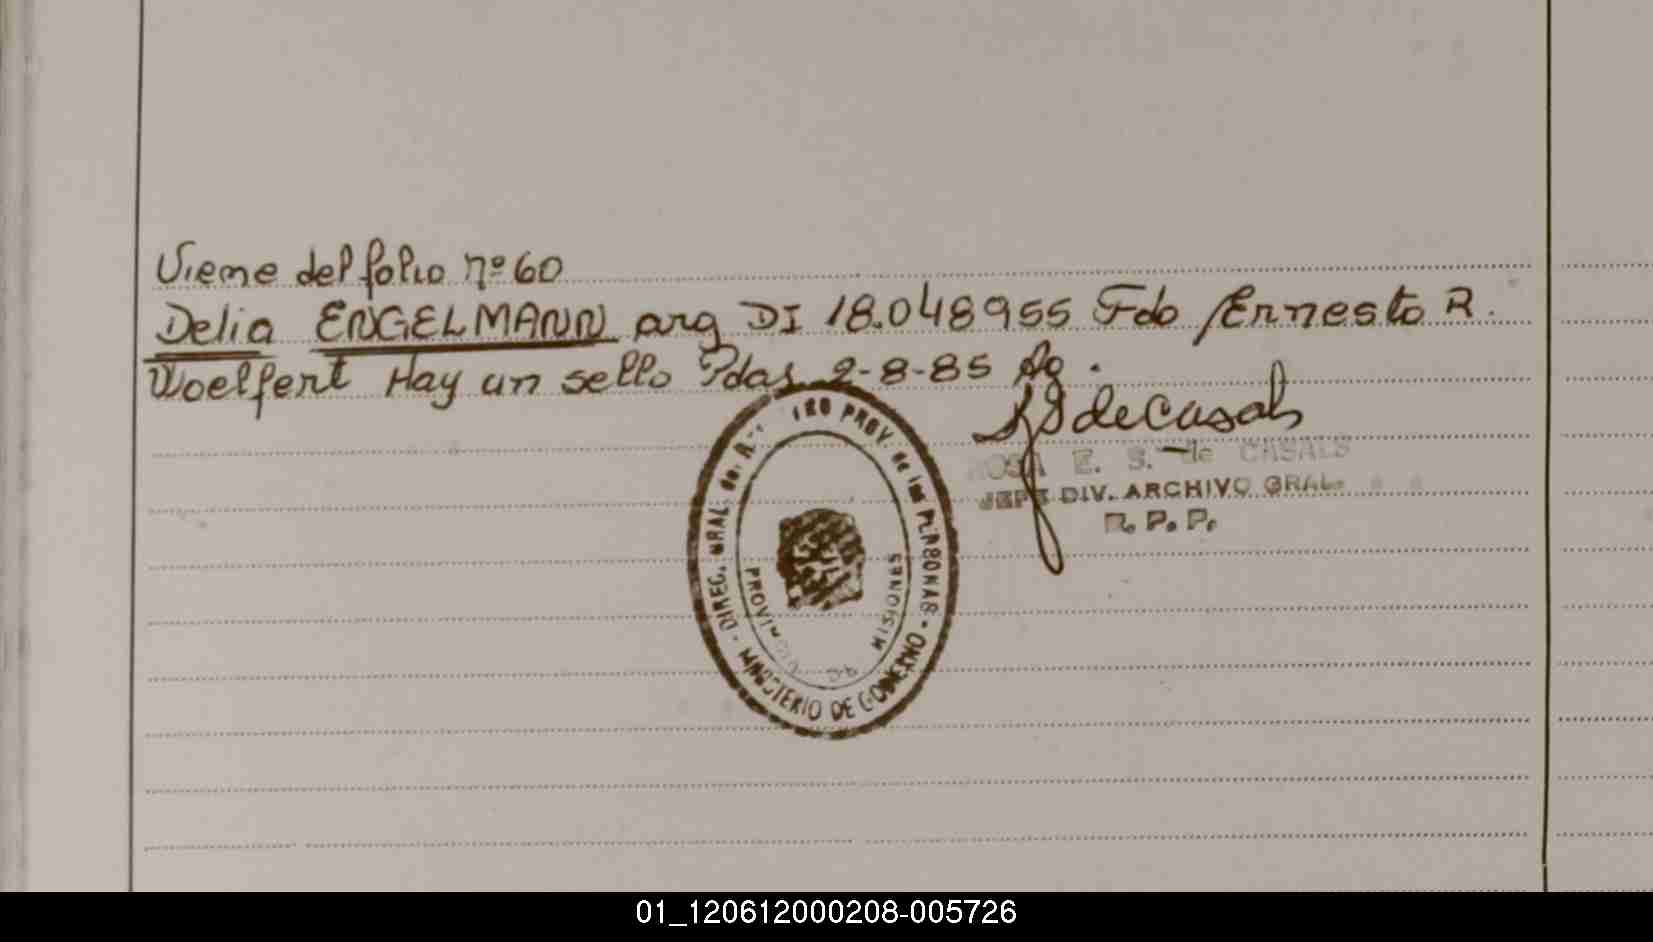 Viene del folio nº 60
Delia ENGELMANN arg DI 18.048955 Fdo/Ernesto R.
Woelfert Hay un sello Pdas 2-8-85 Ag.
ROSA E. S. de CASALS
JEFE DIV. ARCHIVO GRAL.
R. P. P.
DIREC. GRAL. del PROV. de las PERSONAS - MINISTERIO DE GOBIERNO -
PROVINCIA DE MISIONES
01_120612000208-005726